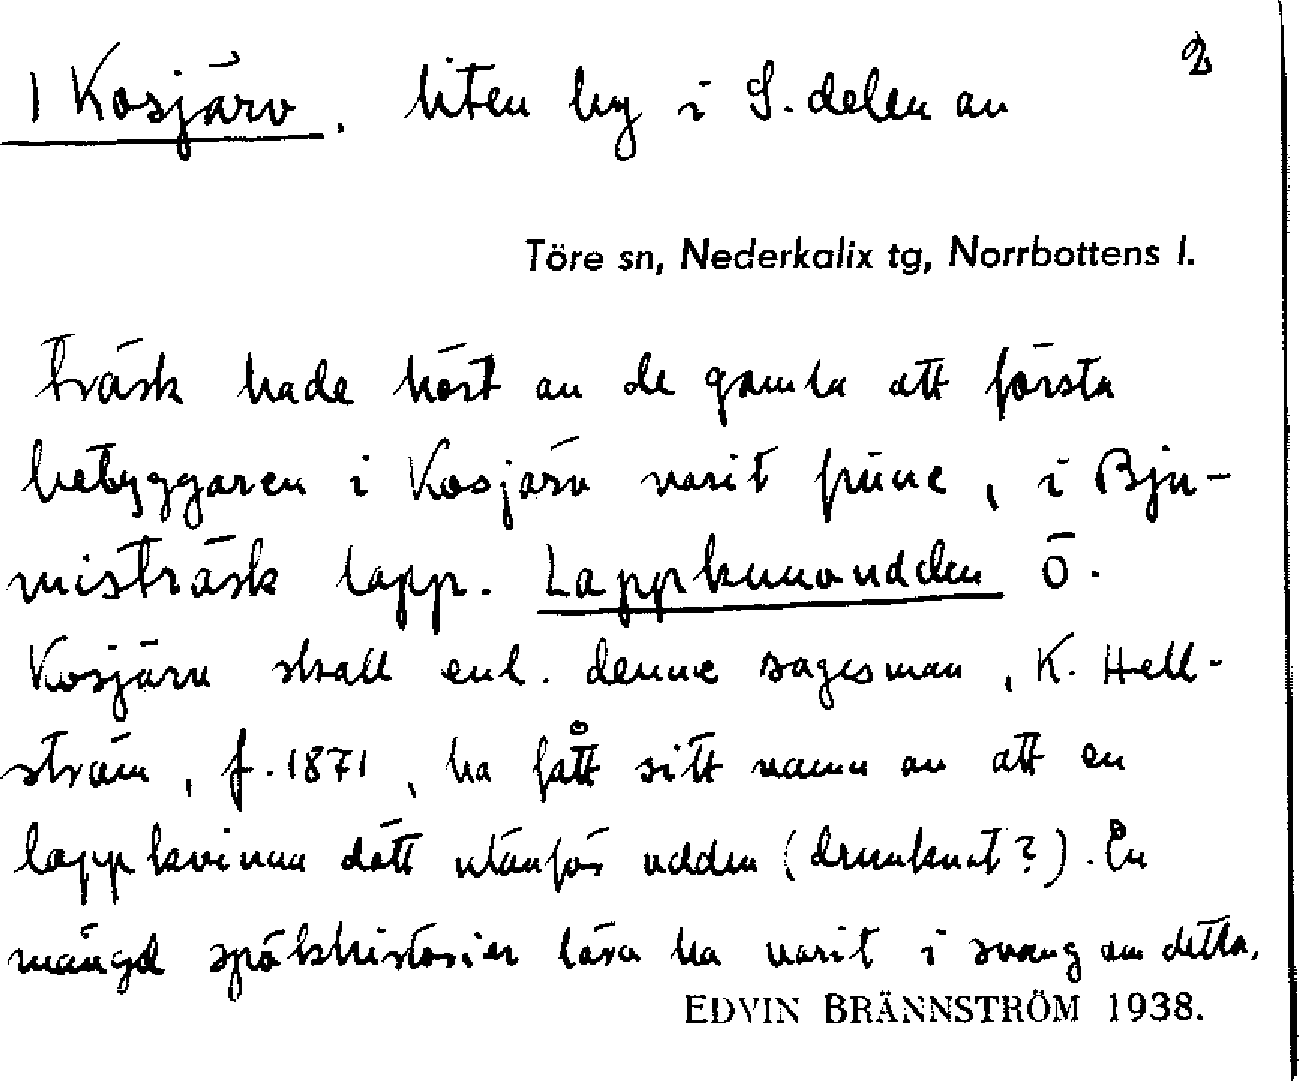 2
1 Kosjärv. liten by i S. delen av
Töre sn, Nederkalix tg, Norrbottens l.
träsk hade hört av de gamla att första
bebyggaren i Kosjärv varit finne, i Bju-
misträsk lapp. Lappkunoudden Ö.
Kosjärv skall enl. denne sagesman, K. Hell-
ström, f. 1871, ha fått sitt namn av att en
lappkvinna dött utanför udden (drunknat?). En
mängd spökhistorier lära ha varit i svang om detta.
EDVIN BRÄNNSTRÖM 1938.